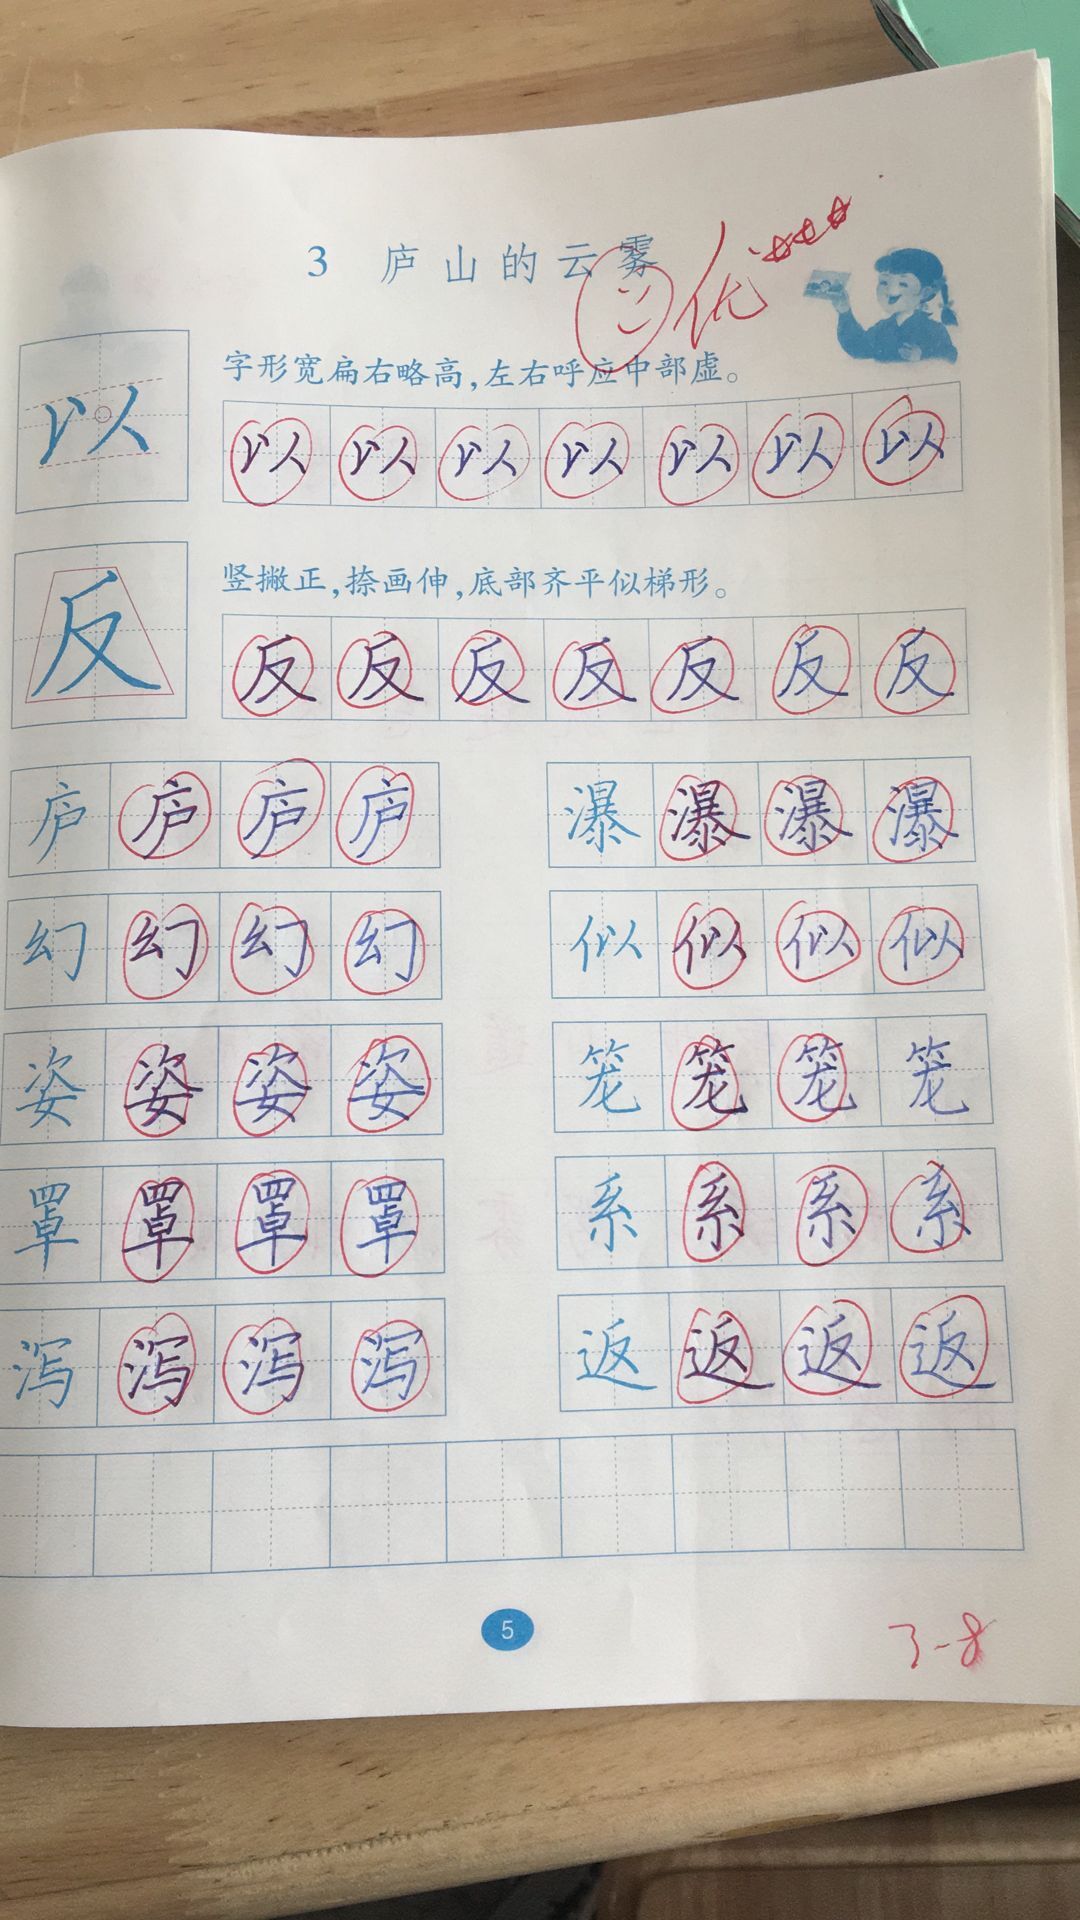 3 庐山的云雾
优
以
字形宽扁右略高,左右呼应中部虚。
以 以 以 以 以 以 以
反
竖撇正,捺画伸,底部齐平似梯形。
反 反 反 反 反 反 反
庐 庐 庐 庐 瀑 瀑 瀑 瀑
幻 幻 幻 幻 似 似 似 似
姿 姿 姿 姿 笼 笼 笼 笼
罩 罩 罩 罩 系 系 系 系
泻 泻 泻 泻 返 返 返 返
5
3-8